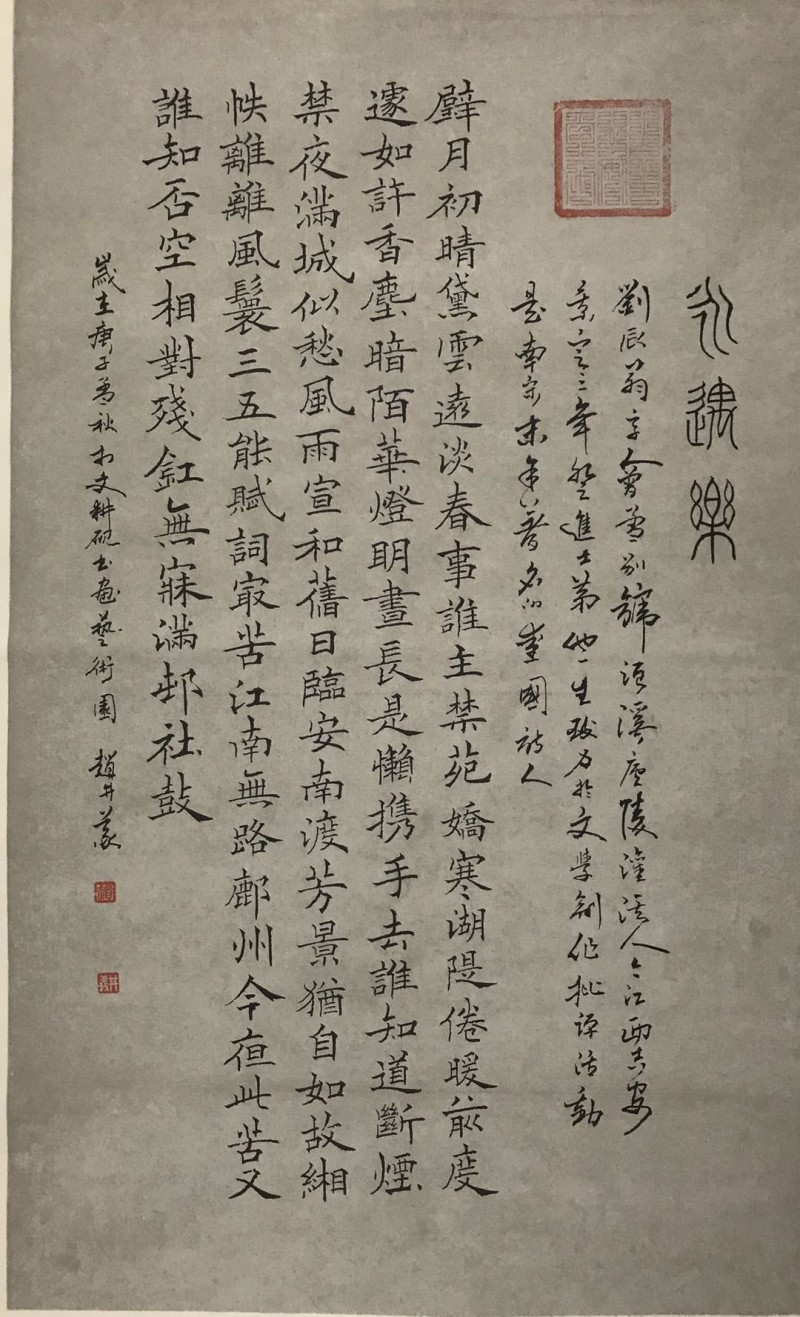 永遇樂
劉辰翁字會孟別號須溪廬陵灌溪人今江西吉安
景定三年登進士第他一生致力於文學創作批評活動
是南宋末年著名的愛國詩人
璧月初晴黛雲遠淡春事誰主禁苑嬌寒湖隄倦暖前度
遽如許香塵暗陌華燈明晝長是懶携手去誰知道斷煙
禁夜滿城似愁風雨宣和舊日臨安南渡芳景猶自如故緗
帙離離風鬟三五能賦詞最苦江南無路鄜州今夜此苦又
誰知否空相對殘釭無寐滿邨社鼓
歲在庚子盂秋於文耕硯書畫藝術園 趙井義